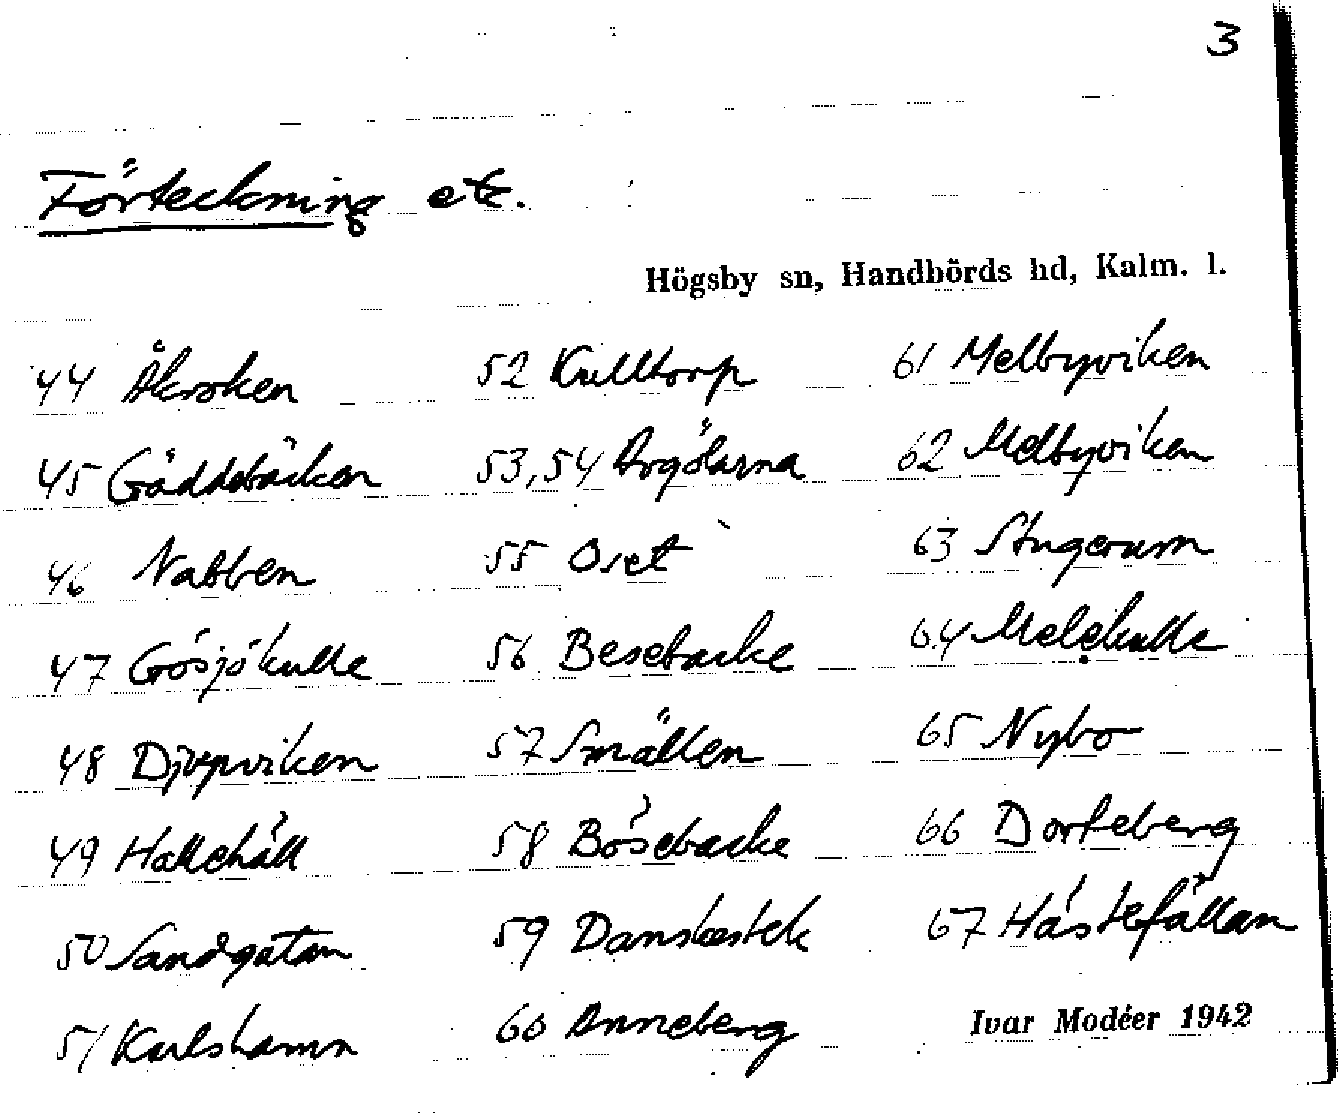 3
Förteckning etc.
Högsby sn, Handbörds hd, Kalm. l.
44 Åkroken
45 Gäddebäcken
46 Nabben
47 Gösjökulle
48 Djupviken
49 Hallehäll
50 Sandgatan
51 Karlshamn
52 Kulltorp
53, 54 Argölarna
55 Oset
56 Besebacke
57 Smällen
58 Bösebacke
59 Danskestek
60 Anneberg
61 Melbyviken
62 Melbyviken
63 Stugerum
64 Melekulle
65 Nybo
66 Dorteberg
67 Hästefällan
Ivar Modéer 1942